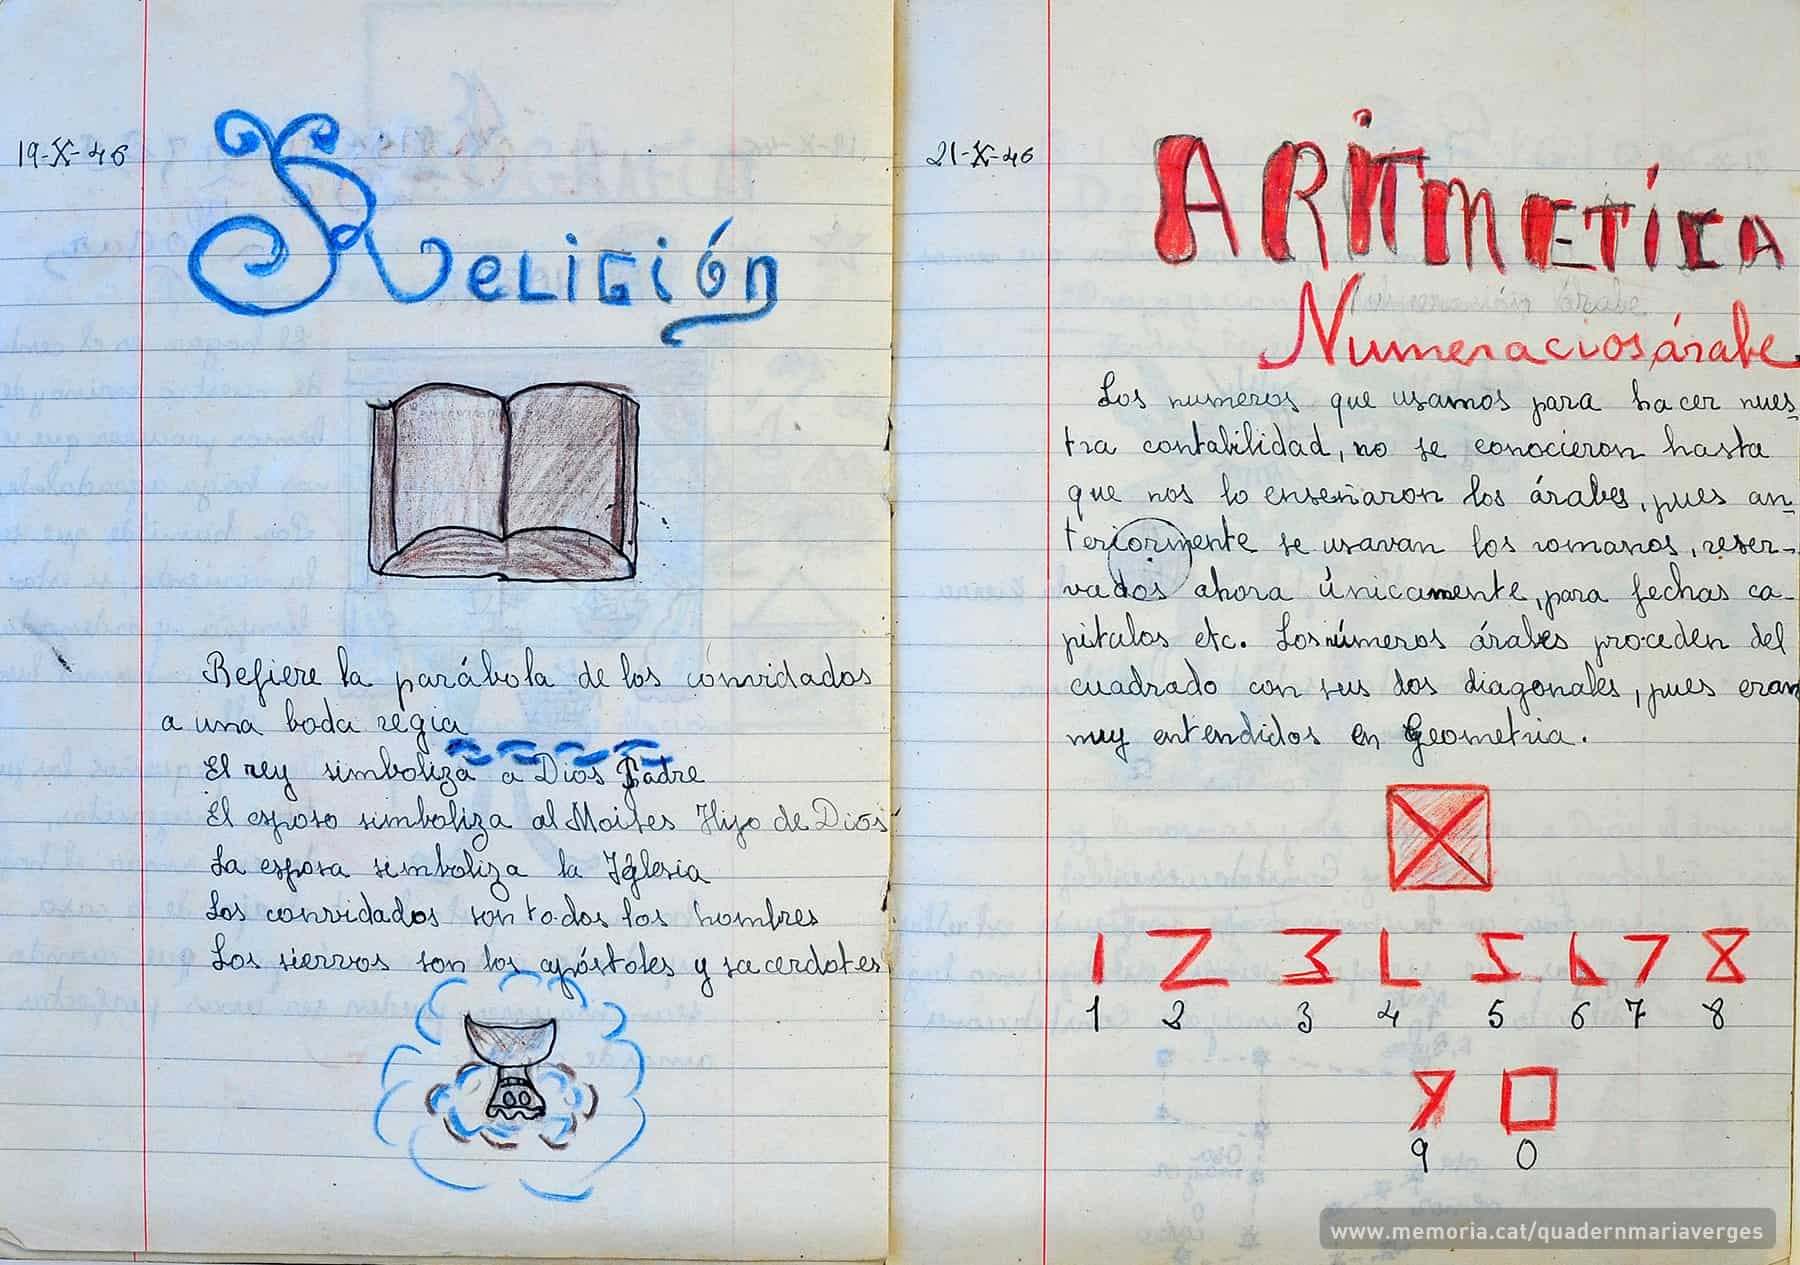 19-X-46
Religión
Refiere la parábola de los convidados
a una boda regia
El rey simboliza a Dios Padre
El esposo simboliza al Moises Hijo de Dios
La esposa simboliza la Iglesia
Los convidados son todos los hombres
Los siervos son los apóstoles y sacerdotes
21-X-46
ARITMETÍCA
Numeracios árabe
Los numeros que usamos para hacer nues-
tra contabilidad, no se conocieron hasta
que nos lo enseñaron los árabes, pues an-
teriormente se usavan los romanos, reser-
vados ahora únicamente, para fechas ca-
pitulos etc. Los números árabes proceden del
cuadrado con sus dos diagonales, pues eran
muy entendidos en Geometria.
1 2 3 4 5 6 7 8
1 2 3 4 5 6 7 8
9 0
9 0
www.memoria.cat/quadernmariaverges